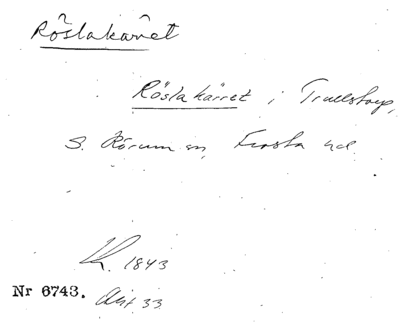 Röslakärret
Röslakärret i Trulstorp,
S. Rörum sn, Frosta hd.
LK. 1843
Nr 6743. Akt. 33